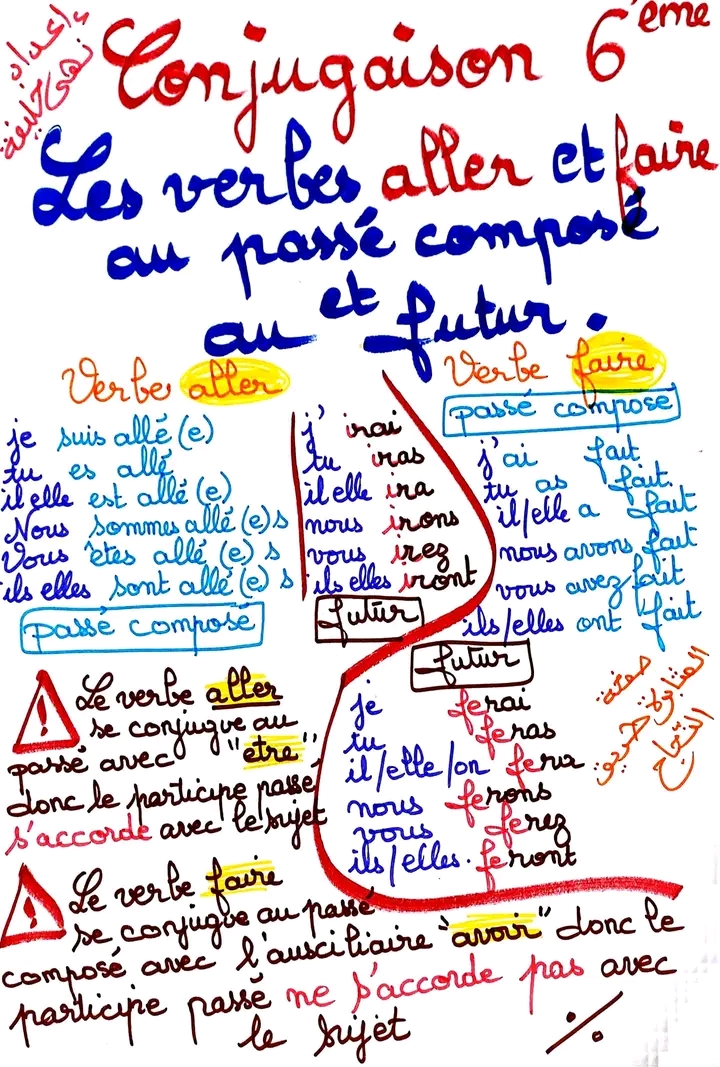 إعداد
نهى خليفة
Conjugaison 6 ème
Les verbes aller et faire
au passé composé
et
au futur.
Verbe aller
je suis allé (e)
tu es allé
il elle est allé (e)
Nous sommes allé (e) s
Vous êtes allé (e) s
ils elles sont allé (e) s
passé composé
j' irai
tu iras
il elle ira
nous irons
vous irez
ils elles iront
futur
Verbe faire
passé composé
j'ai fait
tu as fait.
il/elle a fait
nous avons fait
vous avez fait
ils/elles ont fait
futur
je ferai
tu feras
il/elle/on fera
nous ferons
vous ferez
ils/elles. feront
صفحة
المثابرة طريق
النجاح
! Le verbe aller
se conjugue au
passé avec "être",
donc le participe passe
s'accorde avec le sujet
! Le verbe faire
se conjugue au passé
composé avec l'ausciliaire "avoir" donc le
participe passé ne s'accorde pas avec
le sujet